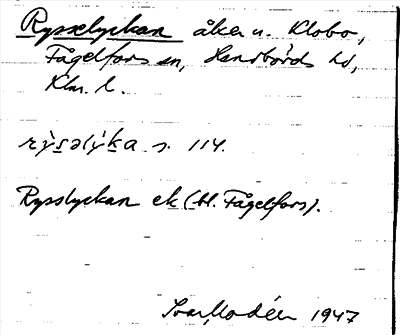 Rysselyckan åker u. Klobo,
Fågelfors sn, Handbörds hd,
Klm. l.
rỳsəlỳka s. 114.
Rysslyckan ek (bl. Fågelfors).
Ivar Modéer 1947